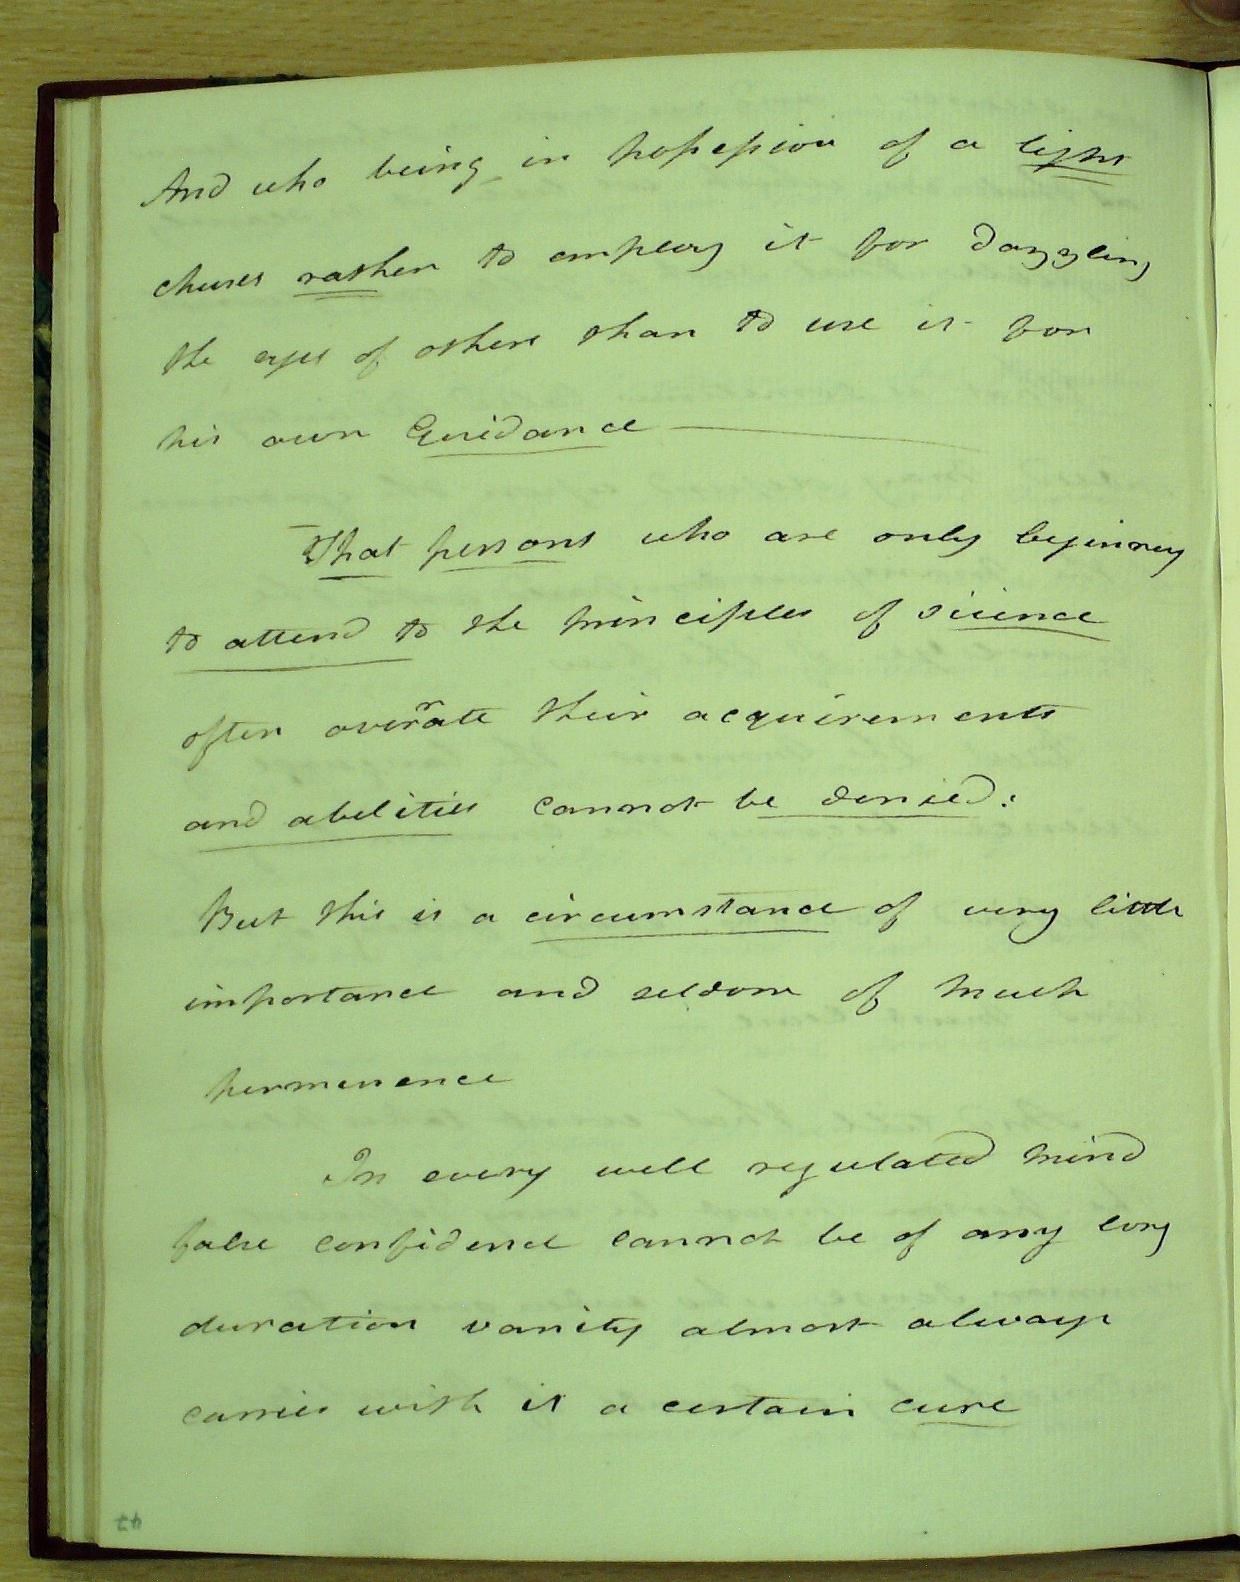 And who being in possession of a light
chuses rather to employ it for dazzling
the eyes of others than to use it for
his own Guidance
That persons who are only beginning
to attend to the principles of science
often overrate their acquirements
and abilities cannot be denied:
But this is a circumstance of very little
importance and seldom of much
permenence
In every well regulated mind
false confidence cannot be of any long
duration vanity almost always
carries with it a certain cure
47